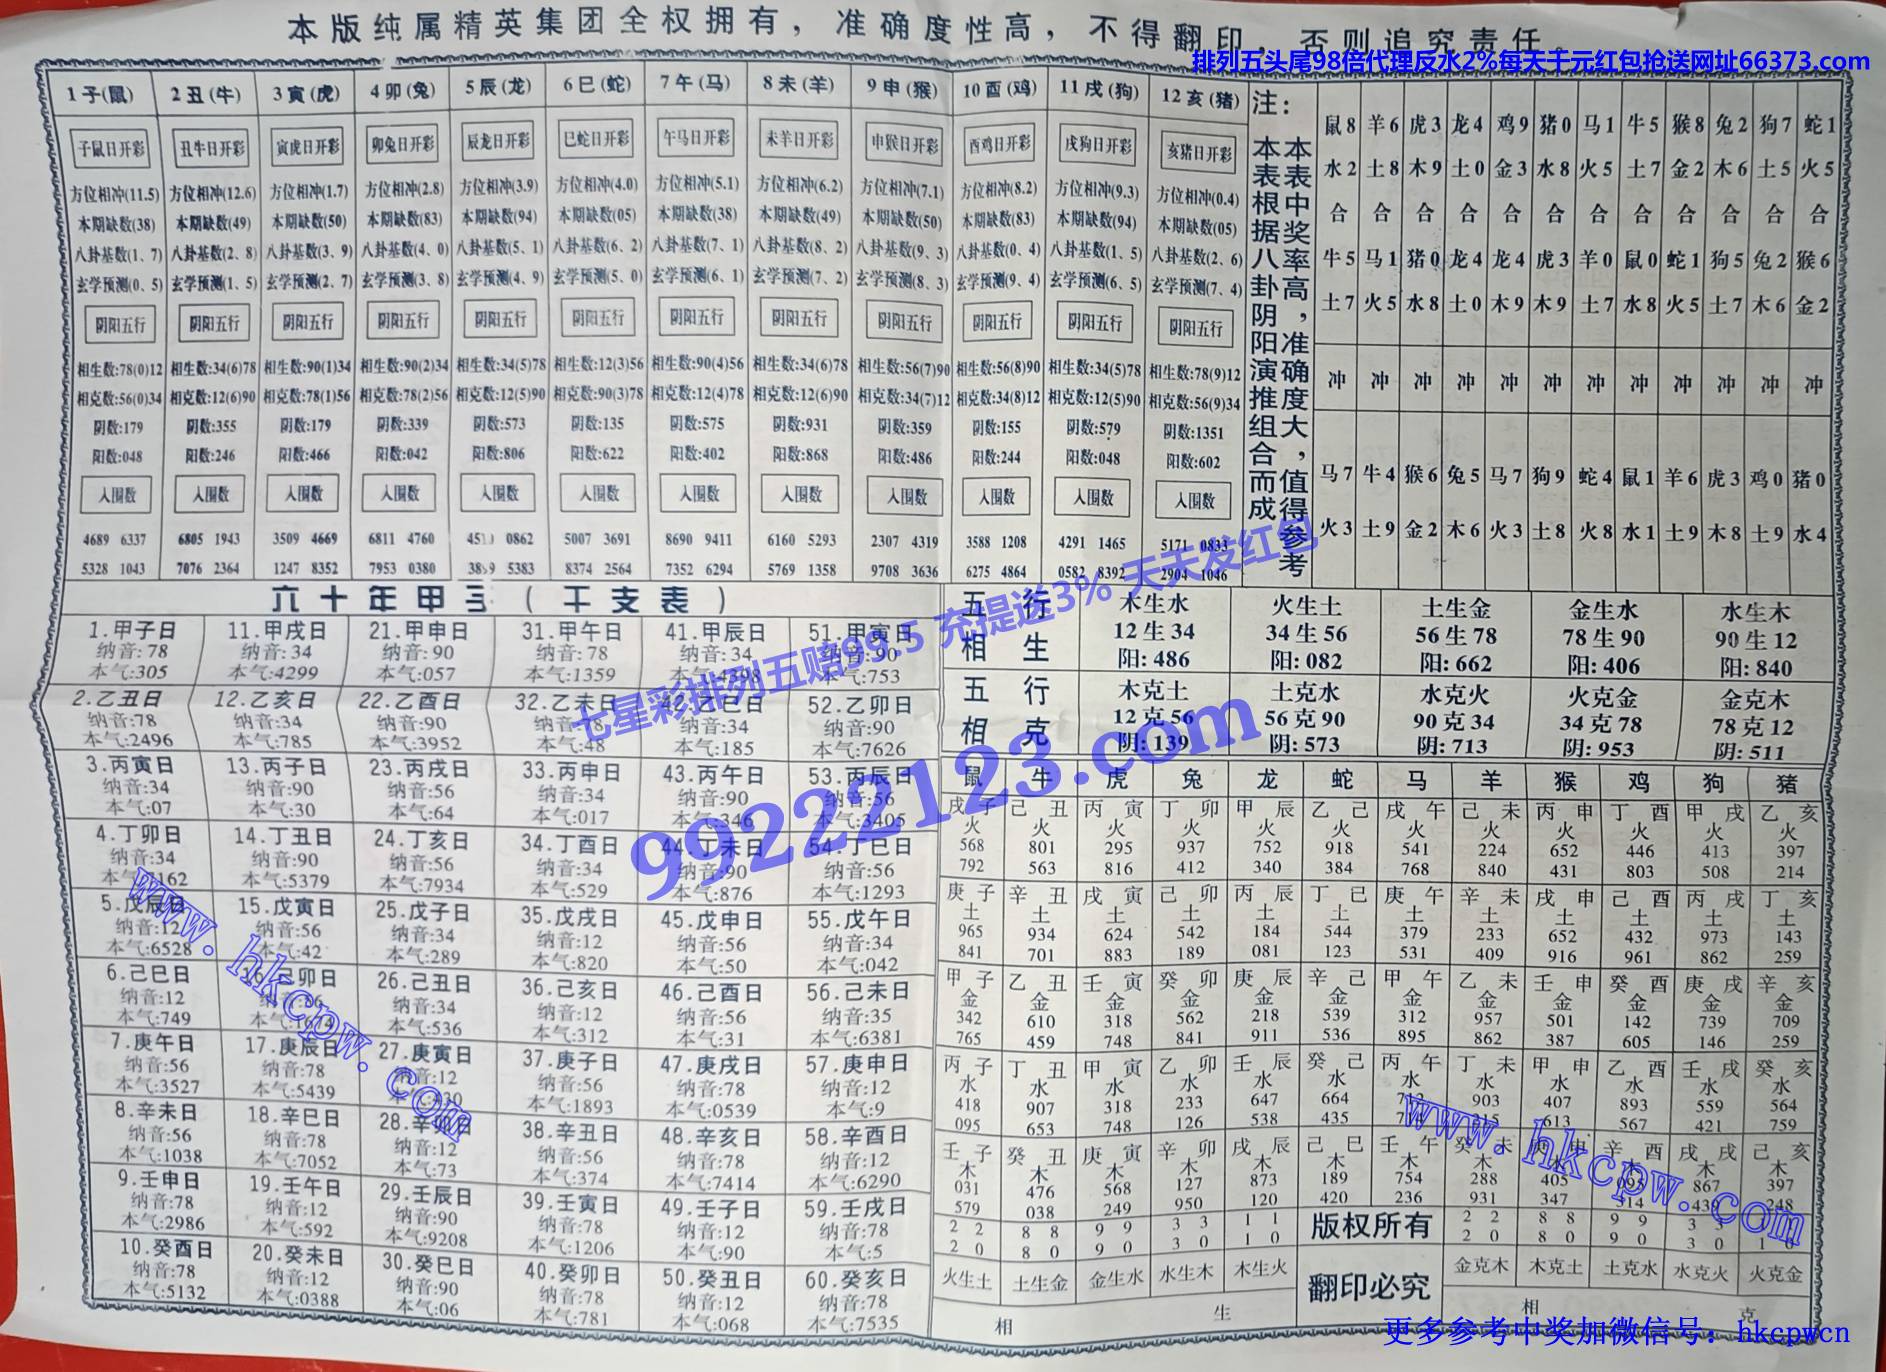 本版纯属精英集团全权拥有，准确度性高，不得翻印，否则追究责任。
排列五头尾98倍代理反水2%每天千元红包抢送网址66373.com
1子(鼠) 2丑(牛) 3寅(虎) 4卯(兔) 5辰(龙) 6巳(蛇) 7午(马) 8未(羊) 9申(猴) 10酉(鸡) 11戌(狗) 12亥(猪)
子鼠日开彩 丑牛日开彩 寅虎日开彩 卯兔日开彩 辰龙日开彩 巳蛇日开彩 午马日开彩 未羊日开彩 申猴日开彩 酉鸡日开彩 戌狗日开彩 亥猪日开彩
方位相冲(11.5) 方位相冲(12.6) 方位相冲(1.7) 方位相冲(2.8) 方位相冲(3.9) 方位相冲(4.0) 方位相冲(5.1) 方位相冲(6.2) 方位相冲(7.1) 方位相冲(8.2) 方位相冲(9.3) 方位相冲(0.4)
本期缺数(38) 本期缺数(49) 本期缺数(50) 本期缺数(83) 本期缺数(94) 本期缺数(05) 本期缺数(38) 本期缺数(49) 本期缺数(50) 本期缺数(83) 本期缺数(94) 本期缺数(05)
八卦基数(1、7) 八卦基数(2、8) 八卦基数(3、9) 八卦基数(4、0) 八卦基数(5、1) 八卦基数(6、2) 八卦基数(7、1) 八卦基数(8、2) 八卦基数(9、3) 八卦基数(0、4) 八卦基数(1、5) 八卦基数(2、6)
玄学预测(0、5) 玄学预测(1、5) 玄学预测(2、7) 玄学预测(3、8) 玄学预测(4、9) 玄学预测(5、0) 玄学预测(6、1) 玄学预测(7、2) 玄学预测(8、3) 玄学预测(9、4) 玄学预测(6、5) 玄学预测(7、4)
阴阳五行 阴阳五行 阴阳五行 阴阳五行 阴阳五行 阴阳五行 阴阳五行 阴阳五行 阴阳五行 阴阳五行 阴阳五行 阴阳五行
相生数:78(0)12 相生数:34(6)78 相生数:90(1)34 相生数:90(2)34 相生数:34(5)78 相生数:12(3)56 相生数:90(4)56 相生数:34(6)78 相生数:56(7)90 相生数:56(8)90 相生数:34(5)78 相生数:78(9)12
相克数:56(0)34 相克数:12(6)90 相克数:78(1)56 相克数:78(2)56 相克数:12(5)90 相克数:90(3)78 相克数:12(4)78 相克数:12(6)90 相克数:34(7)12 相克数:34(8)12 相克数:12(5)90 相克数:56(9)34
阴数:179 阴数:355 阴数:179 阴数:339 阴数:573 阴数:135 阴数:575 阴数:931 阴数:359 阴数:155 阴数:579 阴数:1351
阳数:048 阳数:246 阳数:466 阳数:042 阳数:806 阳数:622 阳数:402 阳数:868 阳数:486 阳数:244 阳数:048 阳数:602
入围数 入围数 入围数 入围数 入围数 入围数 入围数 入围数 入围数 入围数 入围数 入围数
4689 6337 6805 1943 3509 4669 6811 4760 0862 5007 3691 8690 9411 6160 5293 2307 4319 3588 1208 4291 1465 5171 0833
5328 1043 7076 2364 1247 8352 7953 0380 5383 8374 2564 7352 6294 5769 1358 9708 3636 6275 4864 0582 8392 2904 1046
注：
本表中奖率高，准确度大，值得参考
本表根据八卦阴阳演推组合而成
鼠8 羊6 虎3 龙4 鸡9 猪0 马1 牛5 猴8 兔2 狗7 蛇1
水2 土8 木9 土0 金3 水8 火5 土7 金2 木6 土5 火5
合 合 合 合 合 合 合 合 合 合 合 合
牛5 马1 猪0 龙4 龙4 虎3 羊0 鼠0 蛇1 狗5 兔2 猴6
土7 火5 水8 土0 木9 木9 土7 水8 火5 土7 木6 金2
冲 冲 冲 冲 冲 冲 冲 冲 冲 冲 冲 冲
马7 牛4 猴6 兔5 马7 狗9 蛇4 鼠1 羊6 虎3 鸡0 猪0
火3 土9 金2 木6 火3 土8 火8 水1 土9 木8 土9 水4
六十年甲子(干支表)
1.甲子日 11.甲戌日 21.甲申日 31.甲午日 41.甲辰日 51.甲寅日
纳音:78 纳音:34 纳音:90 纳音:78 纳音:34 纳音:90
本气:305 本气:4299 本气:057 本气:1359 本气:4398 本气:753
2.乙丑日 12.乙亥日 22.乙酉日 32.乙未日 42.乙巳日 52.乙卯日
纳音:78 纳音:34 纳音:90 纳音:78 纳音:34 纳音:90
本气:2496 本气:785 本气:3952 本气:48 本气:185 本气:7626
3.丙寅日 13.丙子日 23.丙戌日 33.丙申日 43.丙午日 53.丙辰日
纳音:34 纳音:90 纳音:56 纳音:34 纳音:90 纳音:56
本气:07 本气:30 本气:64 本气:017 本气:346 本气:3405
4.丁卯日 14.丁丑日 24.丁亥日 34.丁酉日 44.丁未日 54.丁巳日
纳音:34 纳音:90 纳音:56 纳音:34 纳音:90 纳音:56
本气: 162 本气:5379 本气:7934 本气:529 本气:876 本气:1293
5.戊辰日 15.戊寅日 25.戊子日 35.戊戌日 45.戊申日 55.戊午日
纳音:12 纳音:56 纳音:34 纳音:12 纳音:56 纳音:34
本气:6528 本气:42 本气:289 本气:820 本气:50 本气:042
6.己巳日 16.己卯日 26.己丑日 36.己亥日 46.己酉日 56.己未日
纳音:12 纳音:56 纳音:34 纳音:12 纳音:56 纳音:35
本气:749 本气:1674 本气:536 本气:312 本气:31 本气:6381
7.庚午日 17.庚辰日 27.庚寅日 37.庚子日 47.庚戌日 57.庚申日
纳音:56 纳音:78 纳音:12 纳音:56 纳音:78 纳音:12
本气:3527 本气:5439 本气: 30 本气:1893 本气:0539 本气:9
8.辛未日 18.辛巳日 28.辛卯日 38.辛丑日 48.辛亥日 58.辛酉日
纳音:56 纳音:78 纳音:12 纳音:56 纳音:78 纳音:12
本气:1038 本气:7052 本气:73 本气:374 本气:7414 本气:6290
9.壬申日 19.壬午日 29.壬辰日 39.壬寅日 49.壬子日 59.壬戌日
纳音:78 纳音:12 纳音:90 纳音:78 纳音:12 纳音:78
本气:2986 本气:592 本气:9208 本气:1206 本气:90 本气:5
10.癸酉日 20.癸未日 30.癸巳日 40.癸卯日 50.癸丑日 60.癸亥日
纳音:78 纳音:12 纳音:90 纳音:78 纳音:12 纳音:78
本气:5132 本气:0388 本气:06 本气:781 本气:068 本气:7535
五行相生
木生水 火生土 土生金 金生水 水生木
12生34 34生56 56生78 78生90 90生12
阳:486 阳:082 阳:662 阳:406 阳:840
五行相克
木克土 土克水 水克火 火克金 金克木
12克56 56克90 90克34 34克78 78克12
阴:139 阴:573 阴:713 阴:953 阴:511
鼠 牛 虎 兔 龙 蛇 马 羊 猴 鸡 狗 猪
戌子 己丑 丙寅 丁卯 甲辰 乙己 戌午 己未 丙申 丁酉 甲戌 乙亥
火 火 火 火 火 火 火 火 火 火 火 火
568 801 295 937 752 918 541 224 652 446 413 397
792 563 816 412 340 384 768 840 431 803 508 214
庚子 辛丑 戌寅 己卯 丙辰 丁己 庚午 辛未 戌申 己酉 丙戌 丁亥
土 土 土 土 土 土 土 土 土 土 土 土
965 934 624 542 184 544 379 233 652 432 973 143
841 701 883 189 081 123 531 409 916 961 862 259
甲子 乙丑 壬寅 癸卯 庚辰 辛己 甲午 乙未 壬申 癸酉 庚戌 辛亥
金 金 金 金 金 金 金 金 金 金 金 金
342 610 318 562 218 539 312 957 501 142 739 709
765 459 748 841 911 536 895 862 387 605 146 259
丙子 丁丑 甲寅 乙卯 壬辰 癸己 丙午 丁未 甲申 乙酉 壬戌 癸亥
水 水 水 水 水 水 水 水 水 水 水 水
418 907 318 233 647 664 903 407 893 559 564
095 653 748 126 538 435 215 613 567 421 759
壬子 癸丑 庚寅 辛卯 戌辰 己巳 壬午 癸未 庚申 辛酉 戌戌 己亥
木 木 木 木 木 木 木 木 木 木 木 木
031 476 568 127 873 189 754 288 405 095 867 397
579 038 249 950 120 420 236 931 347 314 439 248
2 2 8 8 9 9 3 3 1 1 版权所有 2 2 8 8 9 9 3 3
2 0 8 0 9 0 3 0 1 0 2 0 8 0 9 0 3 0 1 0
火生土 土生金 金生水 水生木 木生火 翻印必究 金克木 木克土 土克水 水克火 火克金
相 生 相 克
七星彩排列五赔99.5 充提送3% 天天发红包
99222123.com
www.hkcpw.com
www.hkcpw.com
更多参考中奖加微信号：hkcpwcn